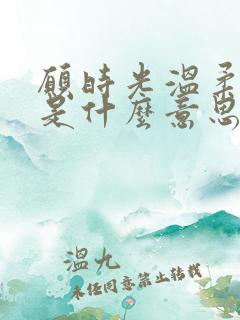 願時光溫柔
是什麼意思
溫九
未經同意禁止轉載